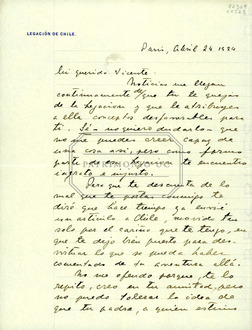 LEGACIÓN DE CHILE.
Paris, Abril 24 1924
Mi querido Vicente
Noticias me llegan
continuamente de que tu te quejas
de la Legacion y que le atribuyes
a ella conceptos desfavorables para
ti. Sé o no quiero dudarlo que
no me puedes creer capaz de
una cosa asi, pero como formo
parte de esa Legacion te encuentro
ingrato e injusto.
Para que te des cuenta de lo
mal que te portas conmigo te
diré que hace tiempo ya envié
un articulo a Chile, movido tan
solo por el cariño que te tengo, en
que te dejo bien puesto para des-
virtuar lo que se pueda haber
comentado de tu aventura allá.
No me ofendo porque, te lo
repito, creo en tu amistad, pero
no puedo tolerar la idea de
que tu padre, a quien estimo